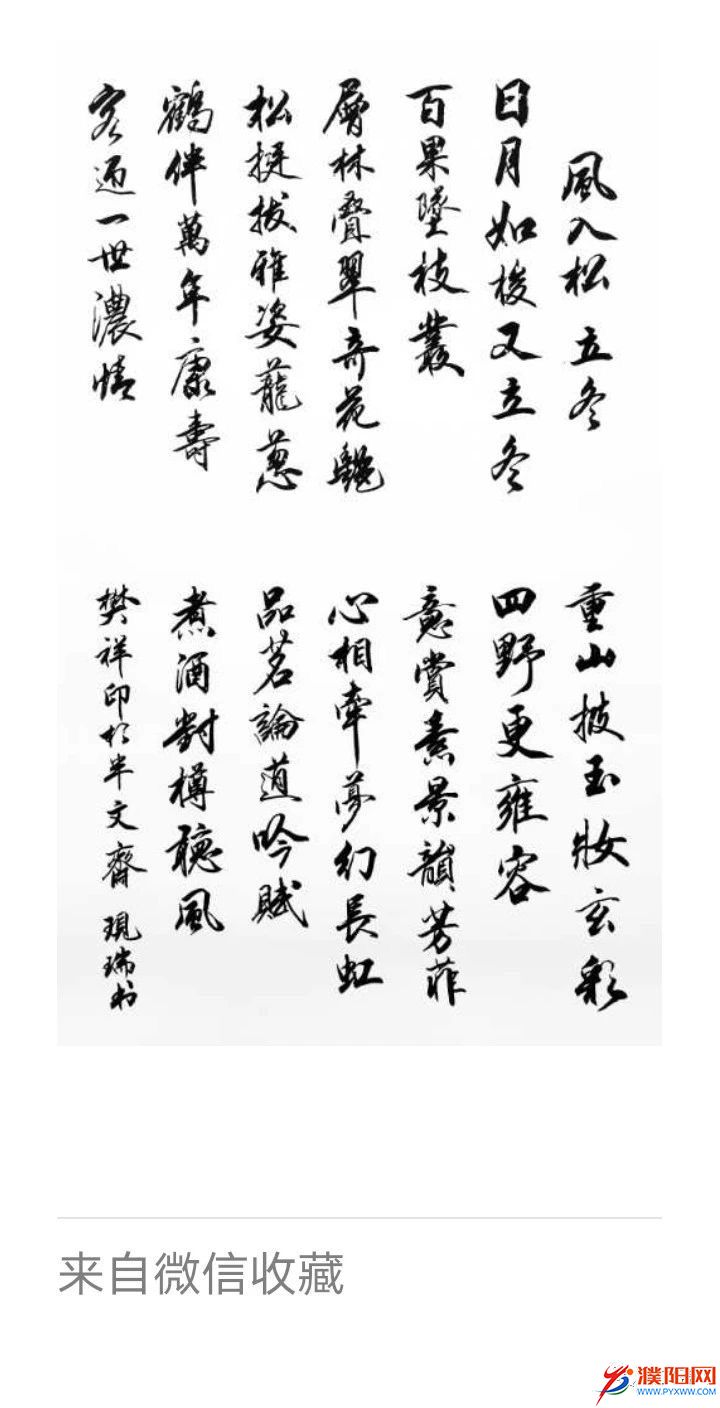 風入松 立冬
日月如梭又立冬
百果墜枝叢
層林疊翠奇花艷
松挺拔雅姿蘢蔥
鶴伴萬年康壽
客迎一世濃情
重山披玉妝玄彩
四野更雍容
意賞素景韻芳菲
心相牽夢幻長虹
品茗論道吟賦
煮酒對樽聽風
樊祥印於半文齋 現瑞书
来自微信收藏
濮阳网
WWW.PYXWW.COM